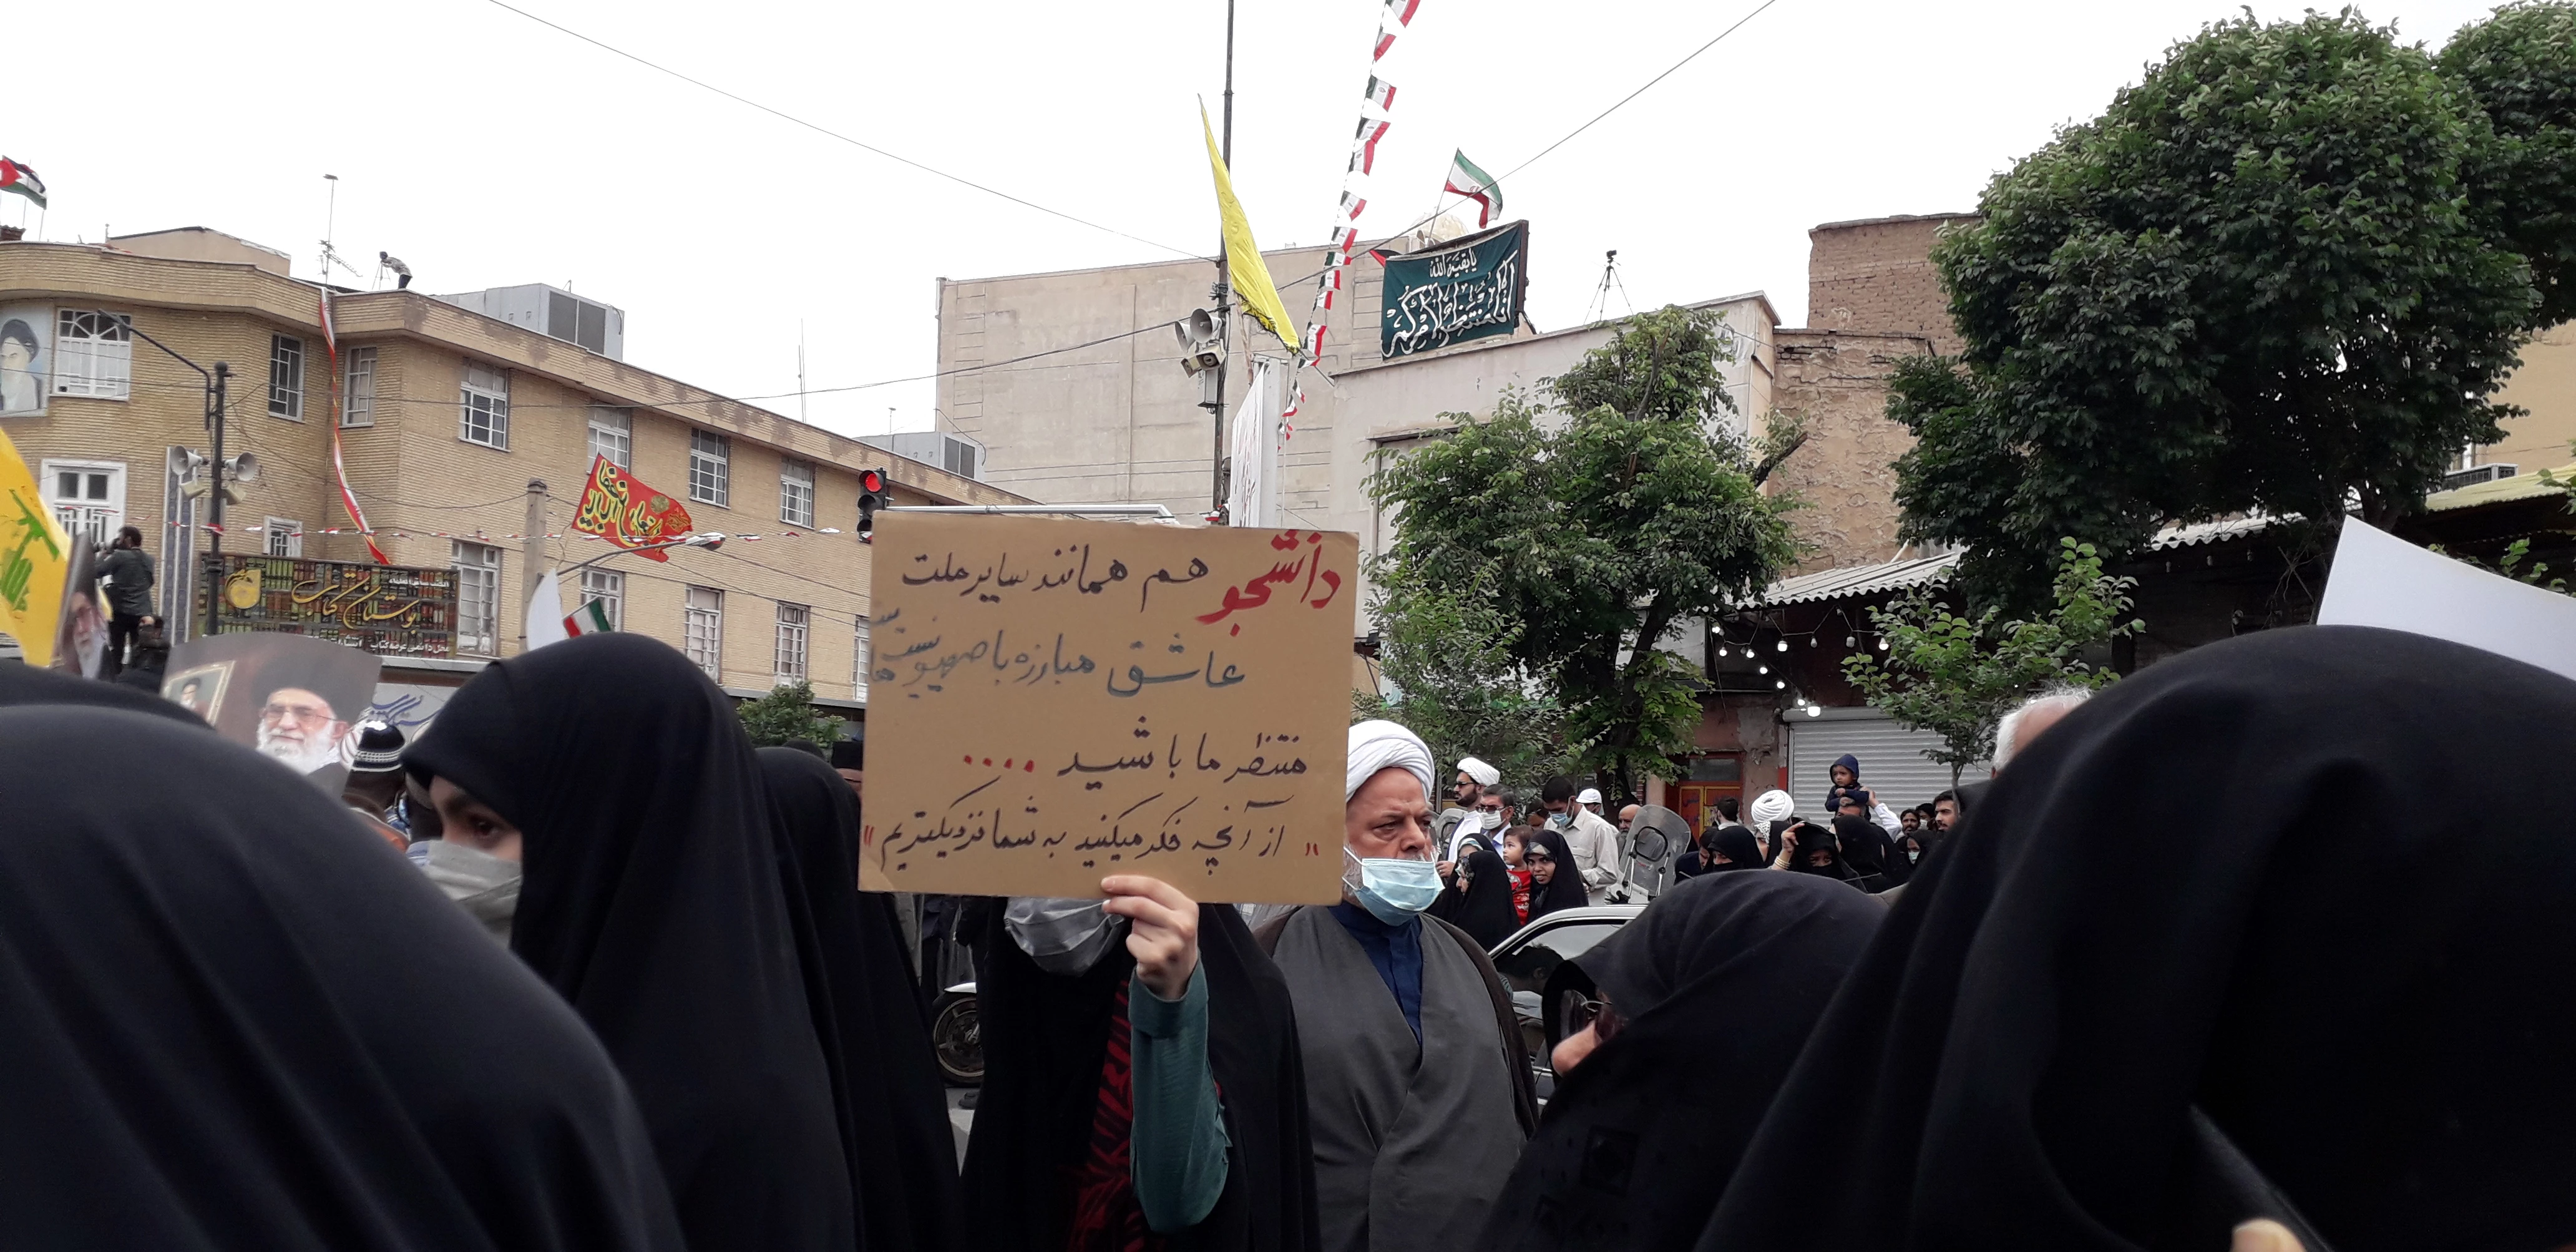 یا بقیة الله
بوستان کتاب
دانشجو هم همانند سایر ملت
عاشق مبارزه با صهیونیست هاست
منتظر ما باشید ....
"از آنچه فکر میکنید به شما نزدیکتریم"